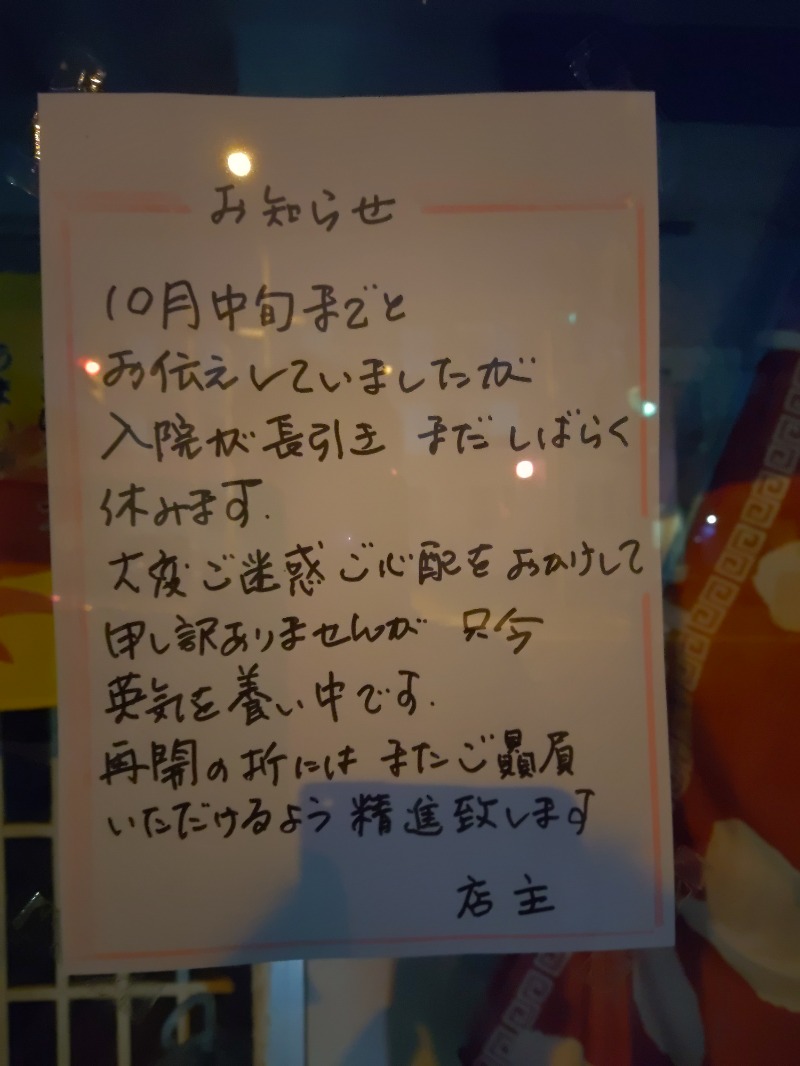 お知らせ
10月中旬までと
お伝えしていましたが
入院が長引き まだしばらく
休みます.
大変ご迷惑ご心配をおかけして
申し訳ありませんが 只今
英気を養い中です.
再開の折には またご贔屓
いただけるよう精進致します
店主